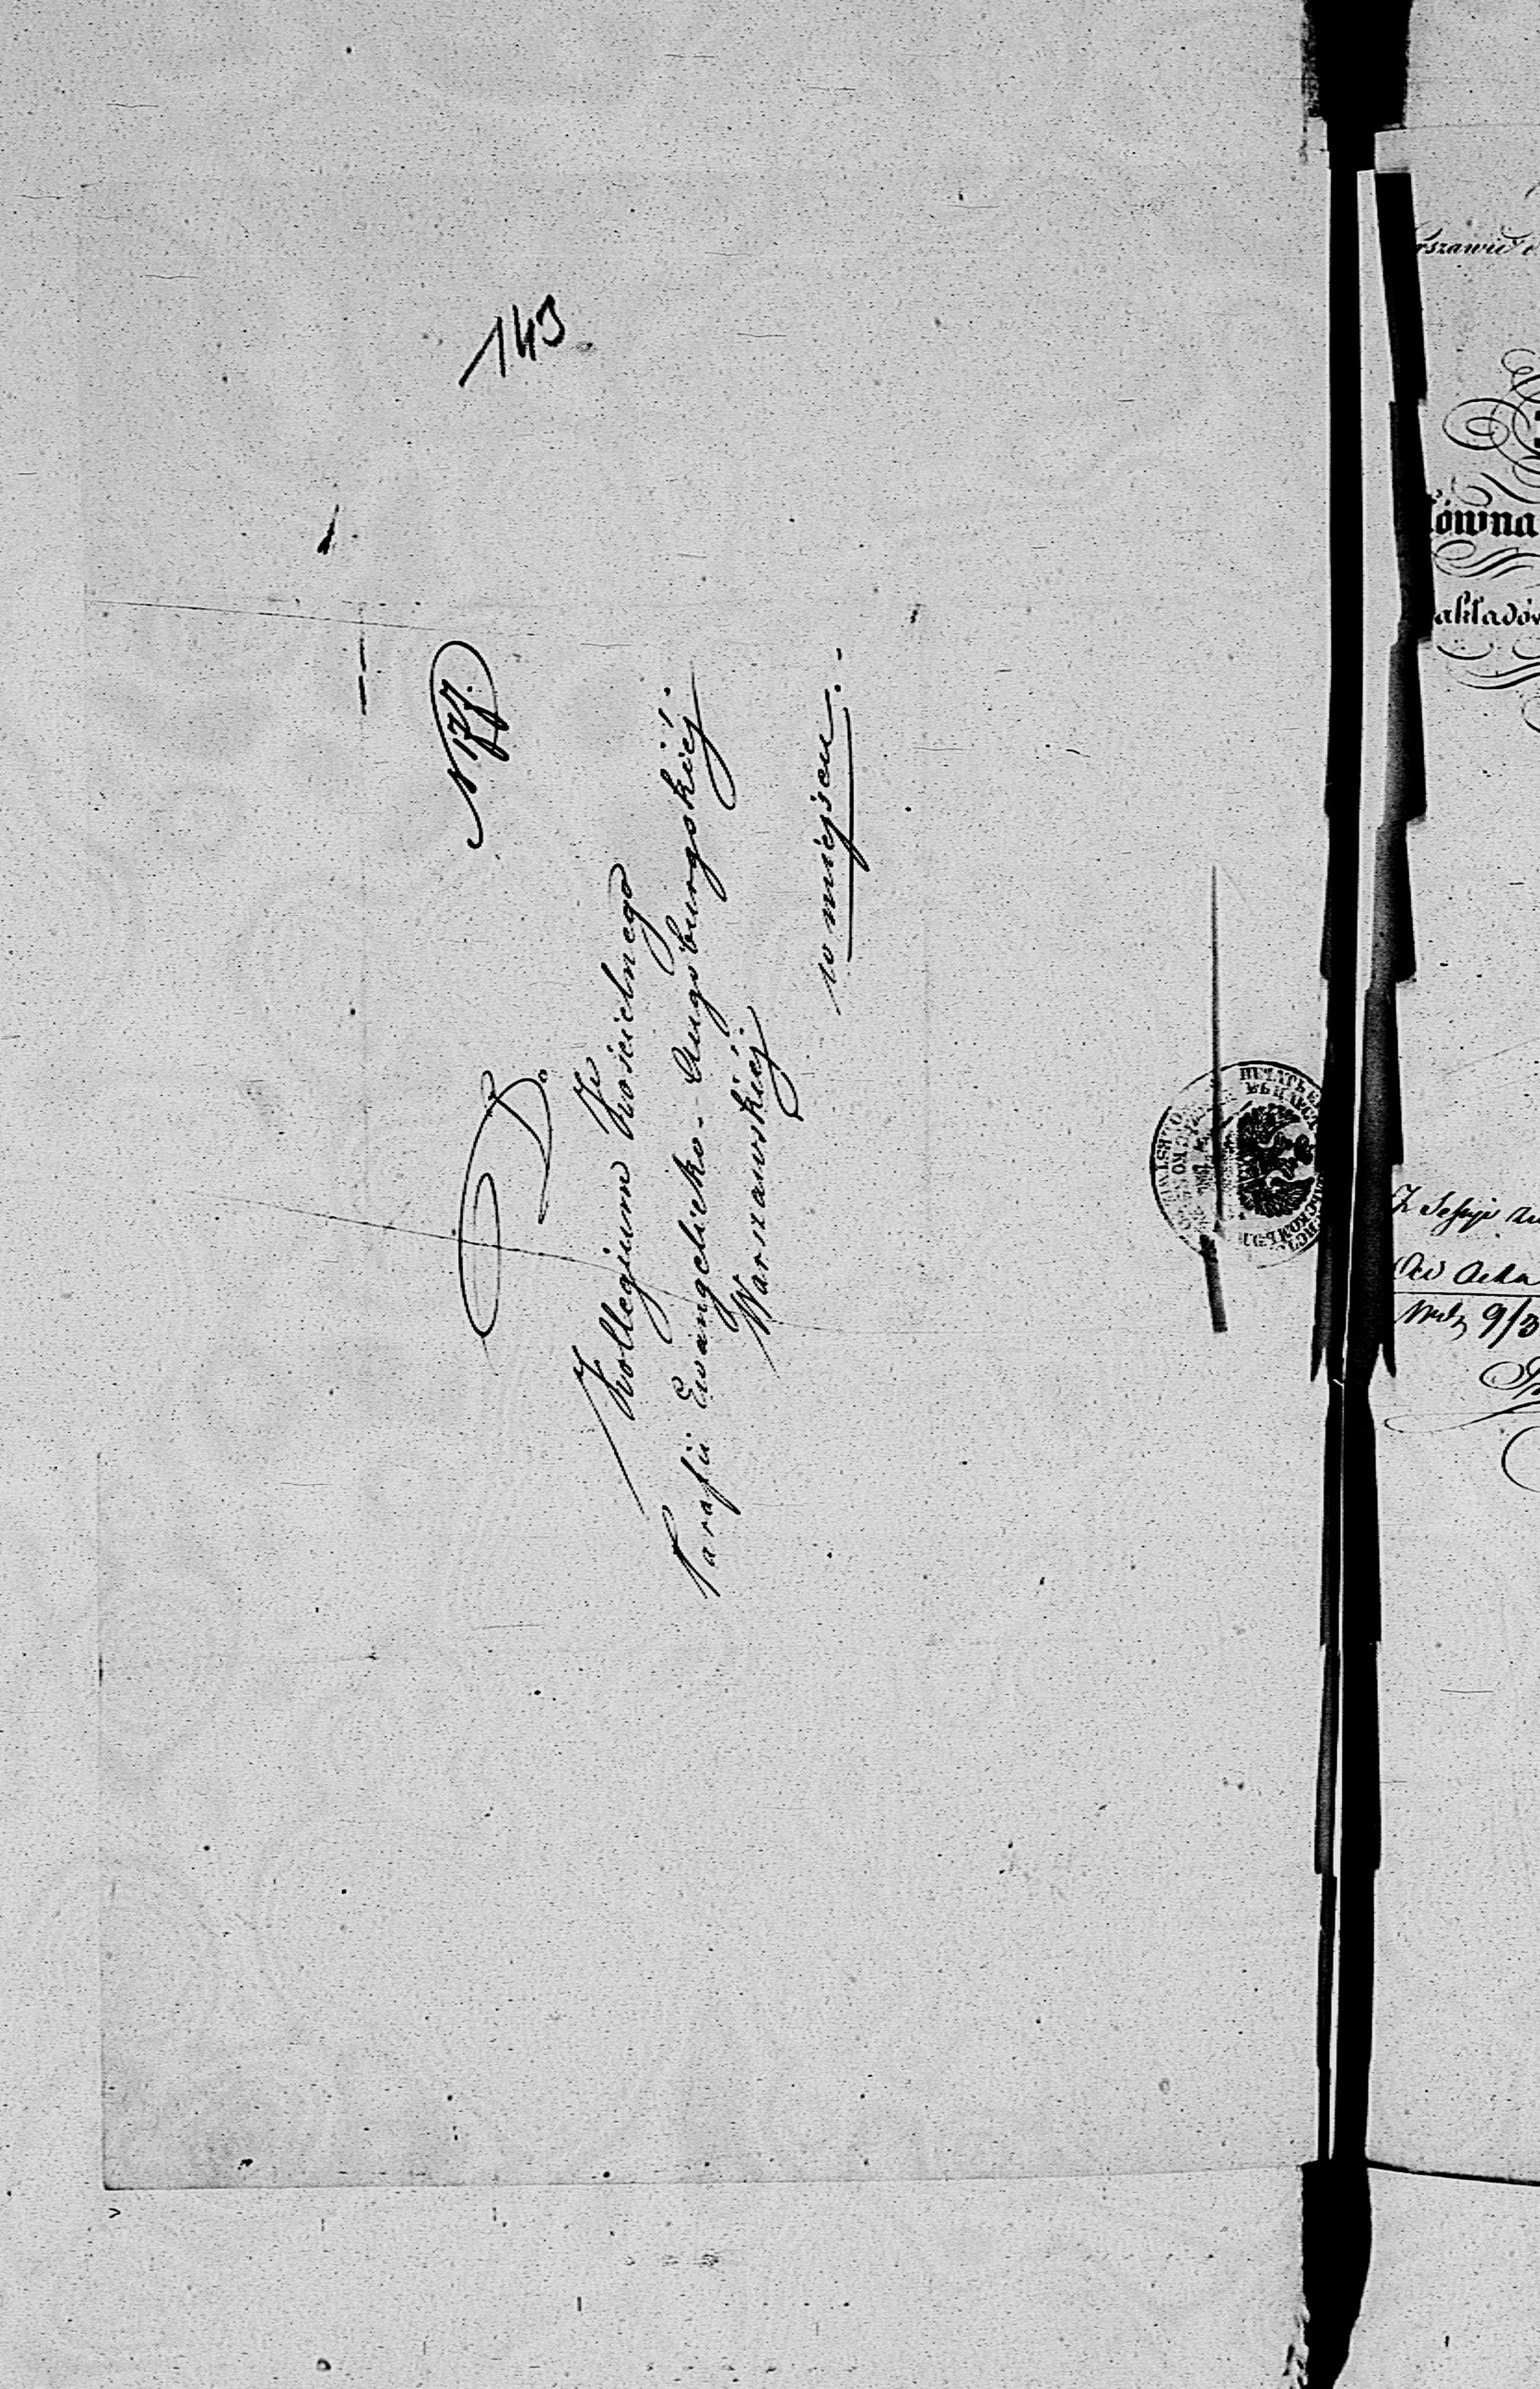 143
N 177.
Do
Kollegium Kościelnego
Parafii Ewangelicko-Augsburgskiéj
Warszawskiéj
w miejscu.
ПЕЧАТЬ
rszawie
ówna
akładów
Z Sessyi
Ad Acta
9/3